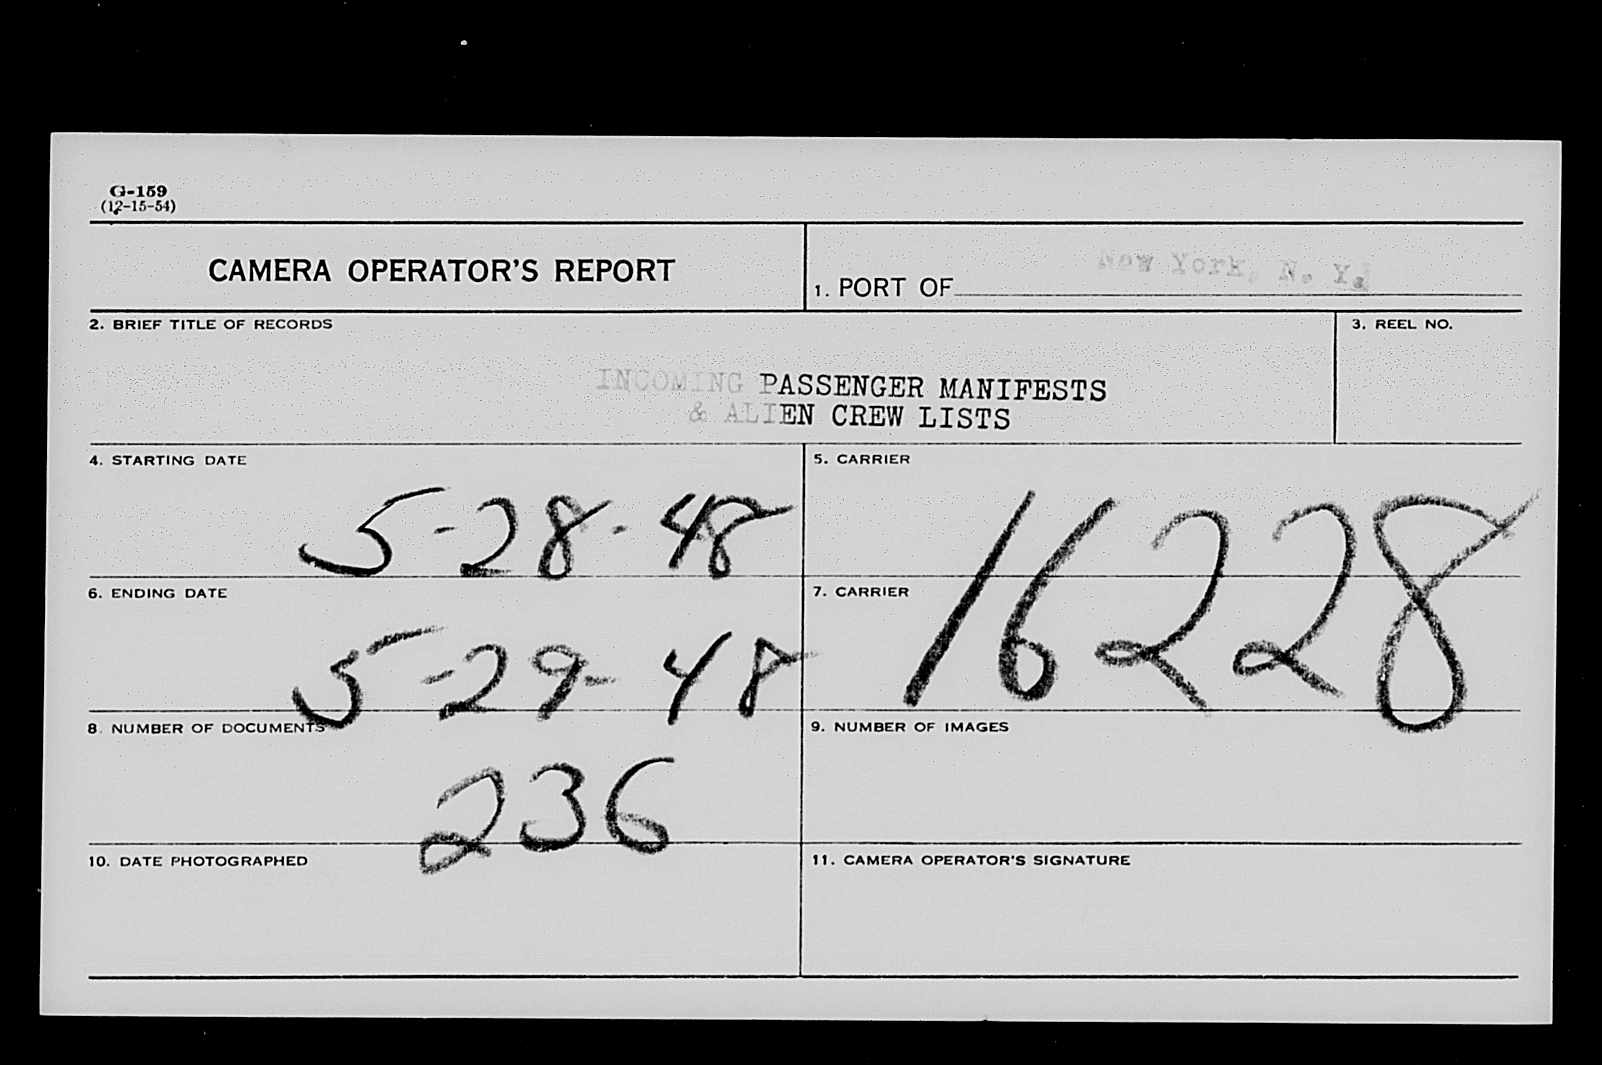 G-159
(12-15-54)
CAMERA OPERATOR'S REPORT
1. PORT OF New York, N. Y.
2. BRIEF TITLE OF RECORDS
3. REEL NO.
INCOMING PASSENGER MANIFESTS
& ALIEN CREW LISTS
4. STARTING DATE
5-28-48
5. CARRIER
16228
6. ENDING DATE
5-29-48
7. CARRIER
8. NUMBER OF DOCUMENTS
236
9. NUMBER OF IMAGES
10. DATE PHOTOGRAPHED
11. CAMERA OPERATOR'S SIGNATURE